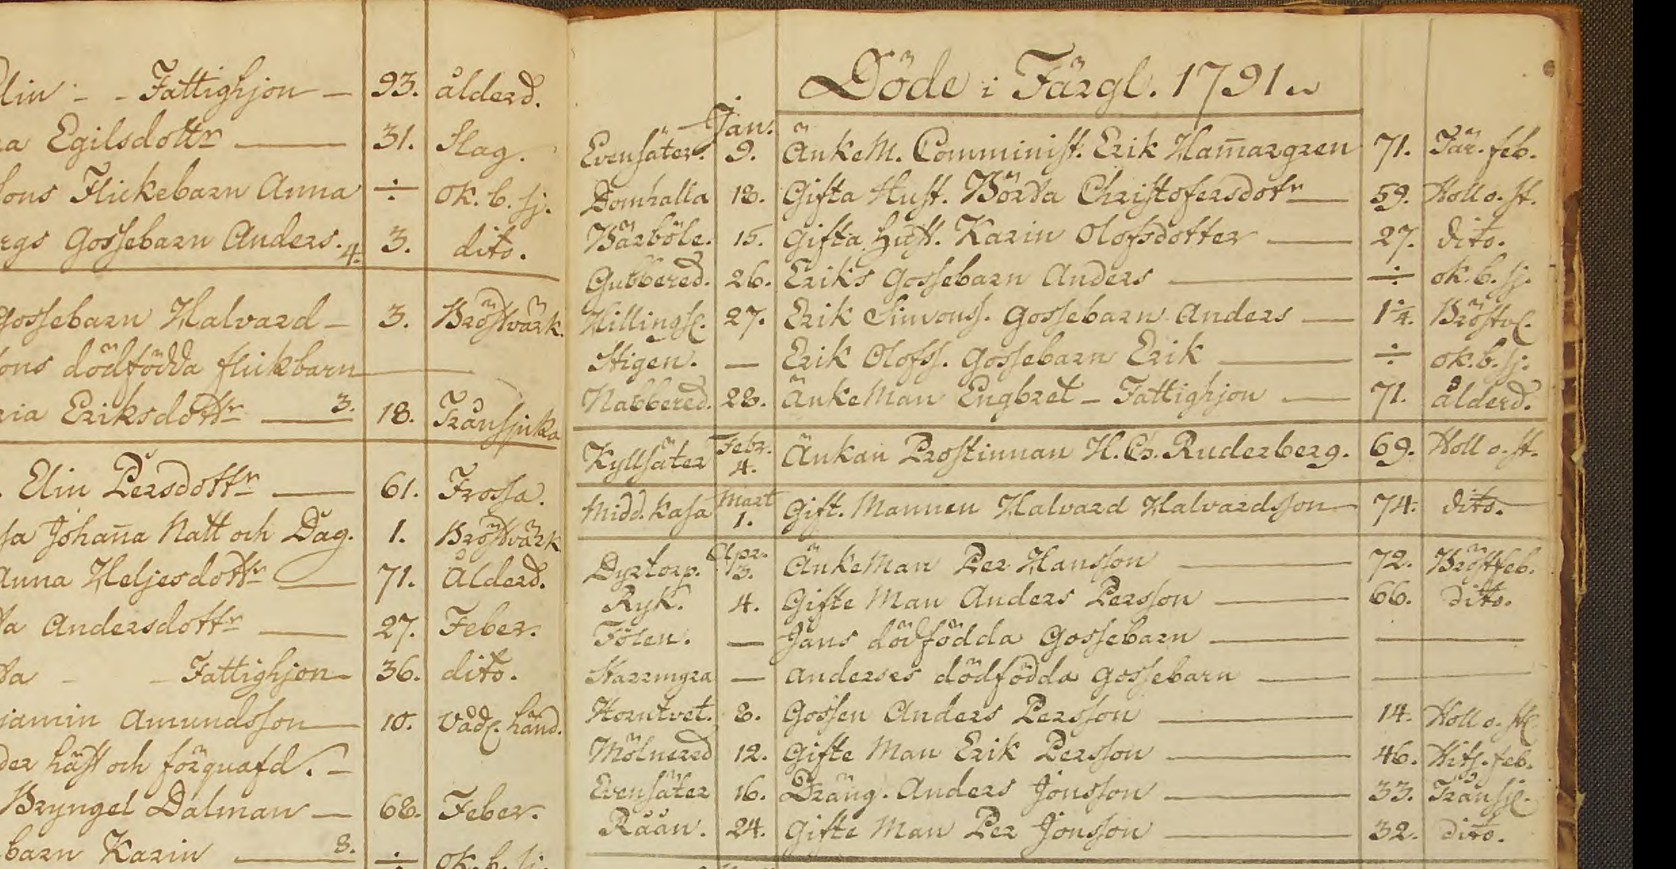 lin - - Fattighjon - 93. ålderd.
a Egilsdottr 31. Slag.
sons Flickebarn Anna ÷ ok. b. sj.
rgs Gossebarn Anders. 4. 3. dito.
Gossebarn Halvard - 3. Bröstvärk.
ons dödfödda flickbarn
ria Eriksdottr 3. 18. Trånsjuka
. Elin Persdottr 61. Frossa.
sa Johan̅a Natt och Dag. 1. Bröstvärk
Anna Heljesdottr 71. Ålderd.
ta Andersdottr 27. Feber.
ta - - Fattighjon 36. dito.
jamin Amundsson 10. våd. händ.
der häst och förquafd. -
Bryngel Dalman - 68. Feber.
barn Karin 8. ÷ ok. b. sj.
Döde i Färgl. 1791
Jan.
Evensäter. 9. Änkem. Comminist. Erik Ham̅argren 71. Tär. feb.
Domhalla 13. Gifta Hust. Börta Christofersdotr 59. Holl o. st.
Bärböle. 15. Gifta Hust. Karin Olofsdotter 27. dito.
Gubbered. 26. Eriks Gossebarn Anders ÷ ok. b. sj.
Hillings. 27. Erik Simonss. Gossebarn Anders 1¼. Bröstv.
Stigen. - Erik Olofss. Gossebarn Erik ÷ ok. b. sj.
Nabbered. 28. Änkeman Engbret - Fattighjon 71. ålderd.
Febr.
Kyllsäter 4. Änkan Prostinnan H. Ch. Ruderberg. 69. Holl o. st.
Mart
Midd. kasa 1. Gift. Mannen Halvard Halvardsson 74. dito.
Apr.
Dyrtorp. 3. Änkeman Per Hansson 72. Bröstfeb.
Ryk. 4. Gifte Man Anders Persson 66. dito.
Fölen. - Jans dödfödda Gossebarn
- Anderses dödfödda Gossebarn
Horntvet. 8. Gossen Anders Persson 14. Holl o. st.
Mölnered 12. Gifte Man Erik Persson 46. Hets. feb.
Evensäter 16. Dräng. Anders Jonsson 33. Trånsj.
Råån. 24. Gifte Man Per Jonsson 32. dito.